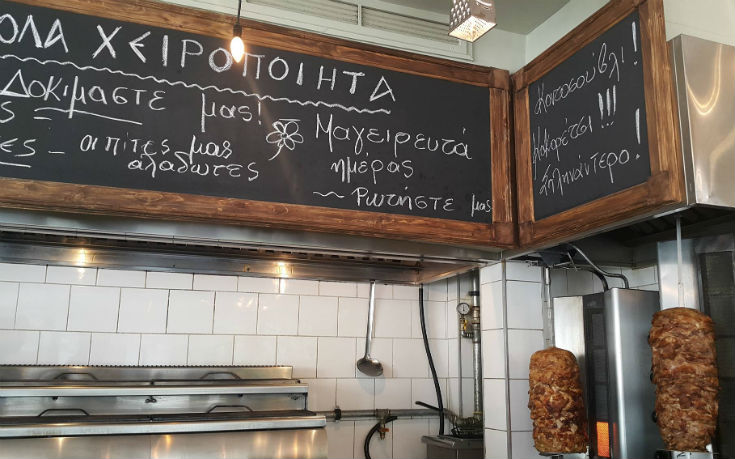 ΟΛΑ ΧΕΙΡΟΠΟΙΗΤΑ
Δοκιμαστε μας!
ς
ες – οι πίτες μας
αλαδωτες
Μαγειρευτά
ημέρας
~ Ρωτήστε μας
Κοντοσούβλι!
Κοκορέτσι!!!
Σπληνάντερο!